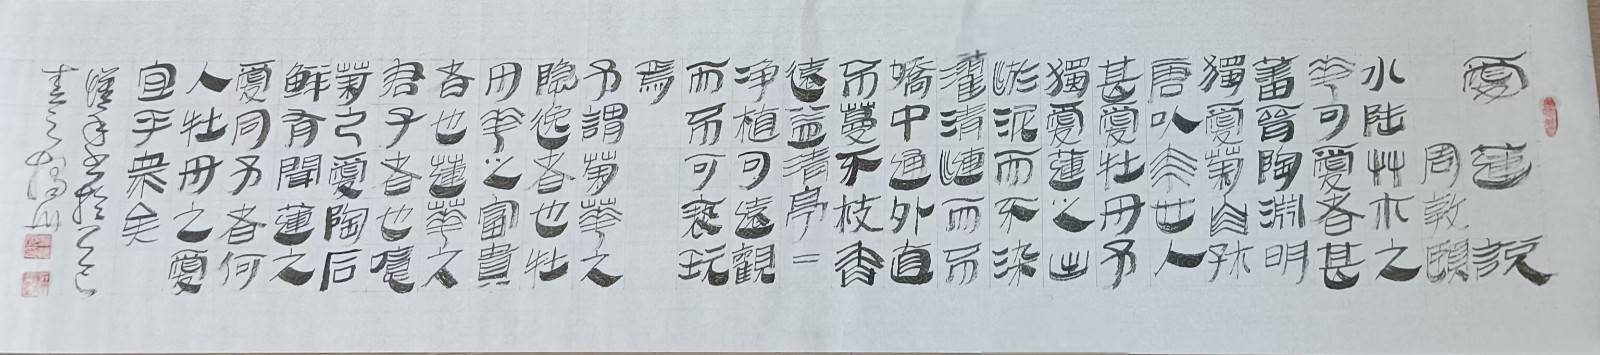 愛蓮說
周敦頤
水陸艸木之
華可愛者甚
蕃晉陶淵明
獨愛菊自李
唐以來世人
甚愛牡丹予
獨愛蓮之出
淤泥而不染
濯清漣而不
嬌中通外直
不蔓不枝香
遠益清亭=
净植可遠觀
而不可褻玩
焉
予謂菊華之
隐逸者也牡
丹華之富貴
者也蓮華之
君子者也噫
菊之愛陶后
鮮有聞蓮之
愛同予者何
人牡丹之愛
宜乎衆矣